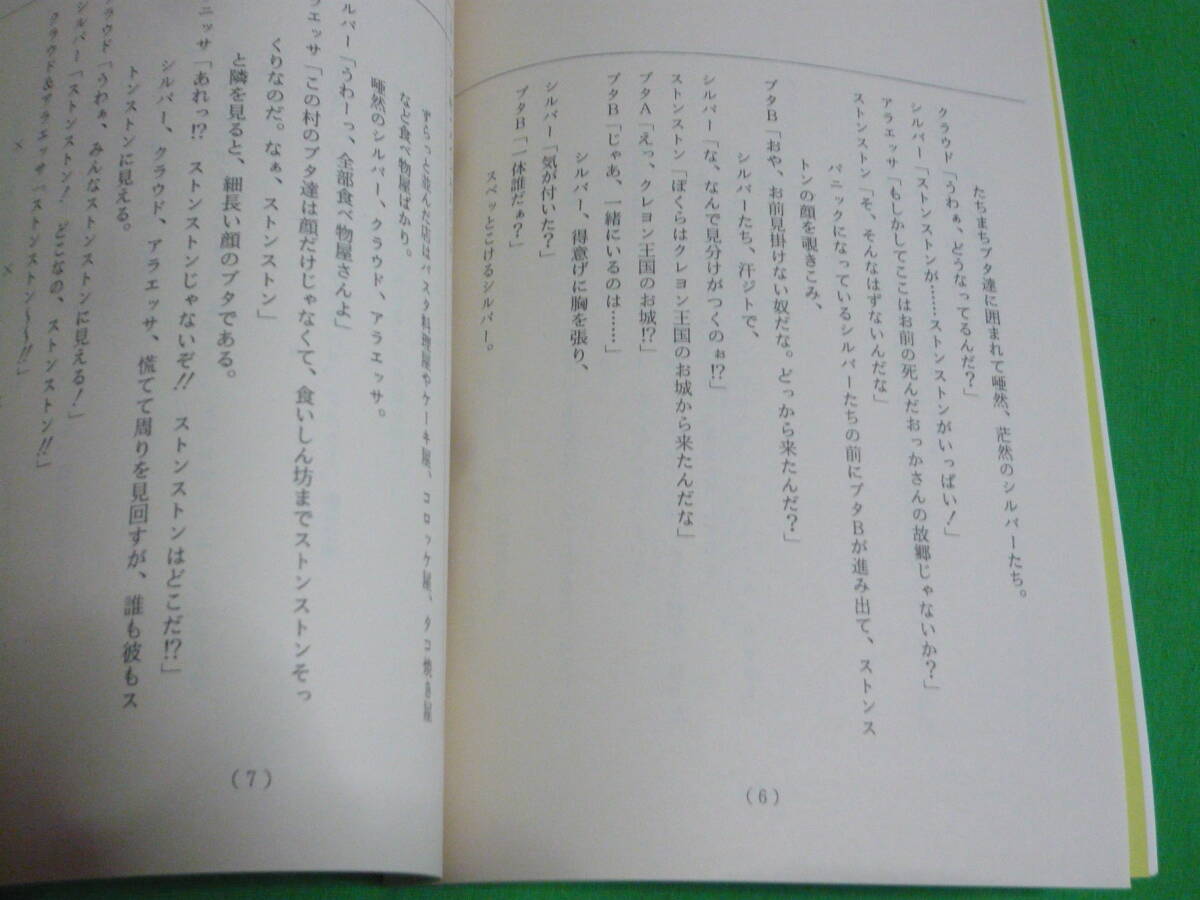 たちまちブタ達に囲まれて唖然、茫然のシルバーたち。
クラウド「うわぁ、どうなってるんだ？」
シルバー「ストンストンが……ストンストンがいっぱい！」
アラエッサ「もしかしてここはお前の死んだおっかさんの故郷じゃないか？」
ストンストン「そ、そんなはずないんだな」
パニックになっているシルバーたちの前にブタBが進み出て、ストンス
トンの顔を覗きこみ、
ブタB「おや、お前見掛けない奴だな。どっから来たんだ？」
シルバーたち、汗ジトで、
シルバー「な、なんで見分けがつくのぉ!?」
ストンストン「ぼくらはクレヨン王国のお城から来たんだな」
ブタA「えっ、クレヨン王国のお城!?」
ブタB「じゃあ、一緒にいるのは……」
シルバー、得意げに胸を張り、
シルバー「気が付いた？」
ブタB「一体誰だぁ？」
スペッとこけるシルバー。
(6)
ずらっと並んだ店はパスタ料理屋やケーキ屋、コロッケ屋、タコ焼き屋
など食べ物屋ばかり。
唖然のシルバー、クラウド、アラエッサ。
ルバー「うわーっ、全部食べ物屋さんよ」
ラエッサ「この村のブタ達は顔だけじゃなくて、食いしん坊までストンストンそっ
くりなのだ。なぁ、ストンストン」
と隣を見ると、細長い顔のブタである。
ニッサ「あれっ!?　ストンストンじゃないぞ!!　ストンストンはどこだ!?」
シルバー、クラウド、アラエッサ、慌てて周りを見回すが、誰も彼もス
トンストンに見える。
ラウド「うわぁ、みんなストンストンに見える！」
シルバー「ストンストン！　どこなの、ストンストン!!」
クラウド&アラエッサ「ストンストン〜〜!!」
×　×
(7)